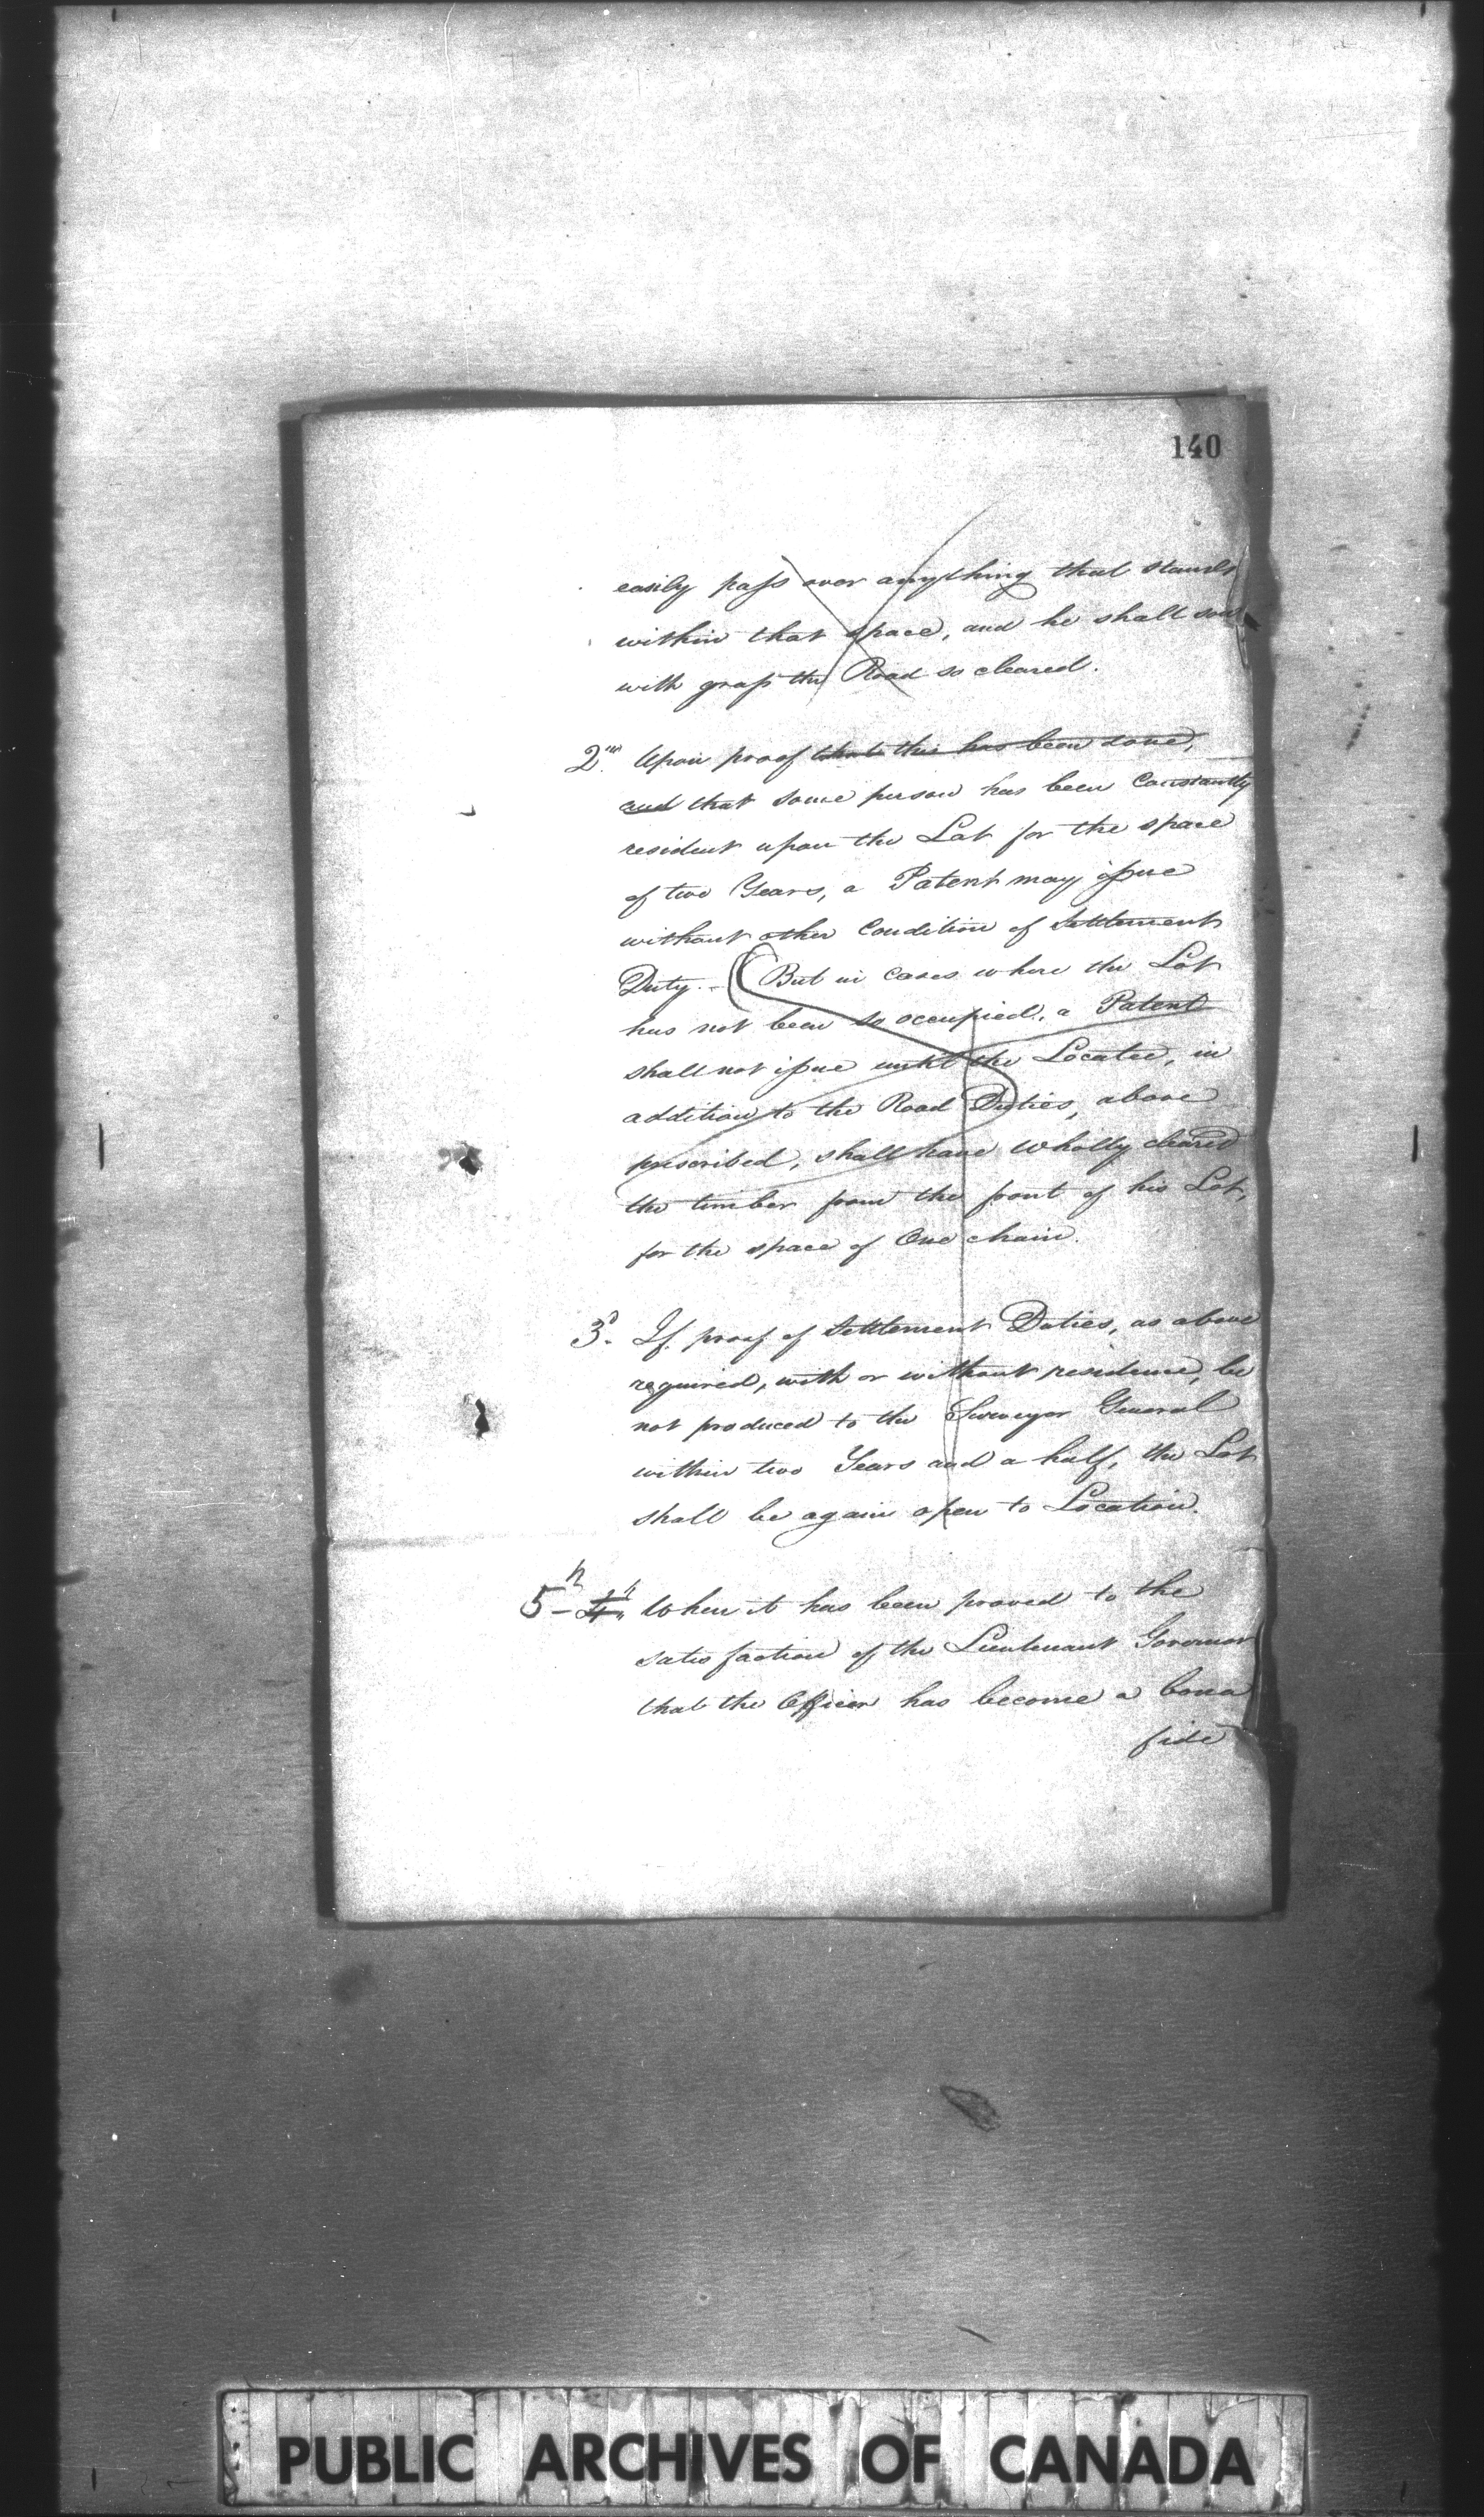 140
easily pass over anything that stands
within that space, and he shall sow
with grass the Road so cleared.
2nd. Upon proof that this has been done,
and that some person has been Constantly
resident upon the Lot for the space
of two Years, a Patent may issue
without other Condition of Settlement
Duty. - But in Cases where the Lot
has not been so occupied, a Patent
shall not issue until the Locatee, in
addition to the Road Duties, above
prescribed, shall have Wholly cleared
the timber from the front of his Lot,
for the space of One chain.
3d. If proof of Settlement Duties, as above
required, with or without residence, be
not produced to the Surveyor General
within two Years and a half, the Lot
shall be again open to Location.
5th 4th When it has been proved to the
satisfaction of the Lieutenant Governor
that the Officer has become a bona
fide
PUBLIC ARCHIVES OF CANADA